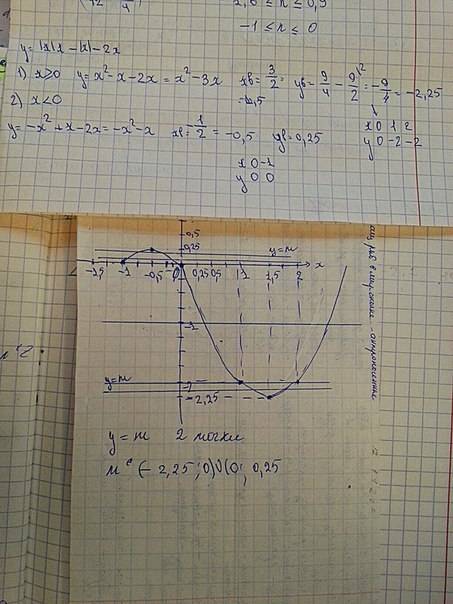 -1 ≤ x ≤ 0
y = |x|x - |x| - 2x
1) x≥0 y = x² - x - 2x = x² - 3x xв = 3/2 = 1,5 yв = 9/4 - 9/2 = -9/4 = -2,25
x 0 1 2
y 0 -2 -2
2) x<0
y = -x² + x - 2x = -x² - x xв = -1/2 = -0,5 yв = 0,25
x 0 -1
y 0 0
0,5
0,25 y=m
-1,5 -1 -0,5 0 0,25 0,5 1 1,5 2 x
-1
y=m
-2,25
y = m 2 точки
m ∈ (-2,25; 0)∪(0; 0,25